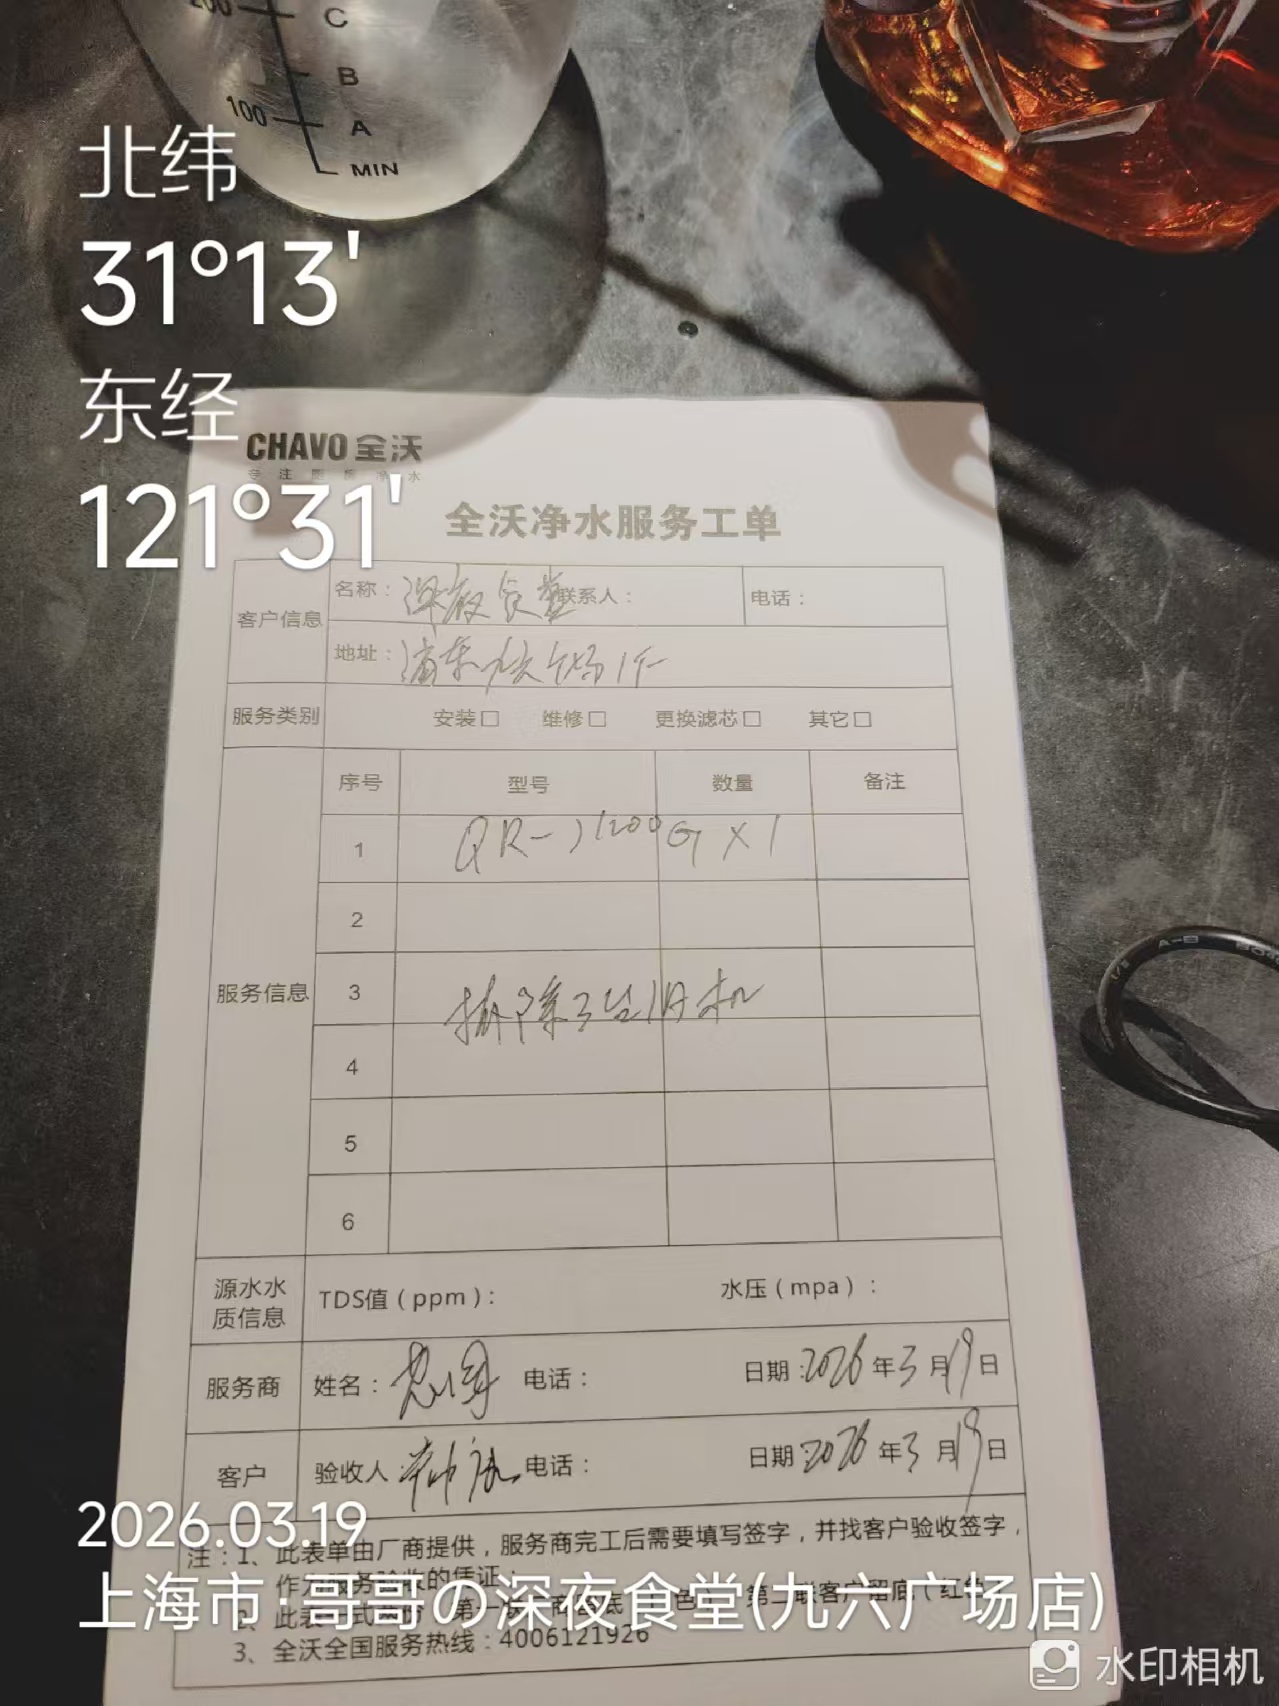 200
C
B
100
A
MIN
北纬
31°13'
东经
121°31'
CHAVO 全沃
专注厨房净水
全沃净水服务工单
客户信息
名称：深夜食堂
联系人：
电话：
地址：浦东九六广场1F
服务类别
安装□ 维修□ 更换滤芯□ 其它□
服务信息
序号 型号 数量 备注
1 QR-J1200G X 1
2
3 拆除3台旧机
4
5
6
源水水质信息
TDS值（ppm）： 水压（mpa）：
服务商 姓名： 电话： 日期：2026年3月19日
客户 验收人： 电话： 日期：2026年3月19日
注：1、此表单由厂商提供，服务商完工后需要填写签字，并找客户验收签字，
作为服务验收的凭证；
2、此表一式两份，第一联 第二联客户留底（红色
3、全沃全国服务热线：4006121926
2026.03.19
上海市·哥哥の深夜食堂(九六广场店)
水印相机
A-B